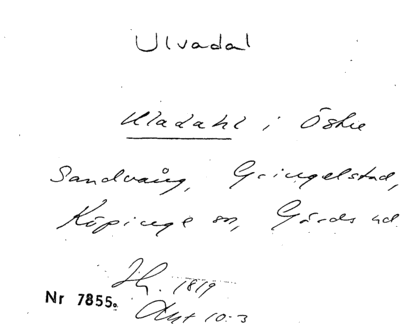 Ulvadal
Uladahl i Östre
Sandvång, Gringelstad,
Köpinge sn, Gärds hd
Jh. 1819
Nr 7855.
Akt 10:3